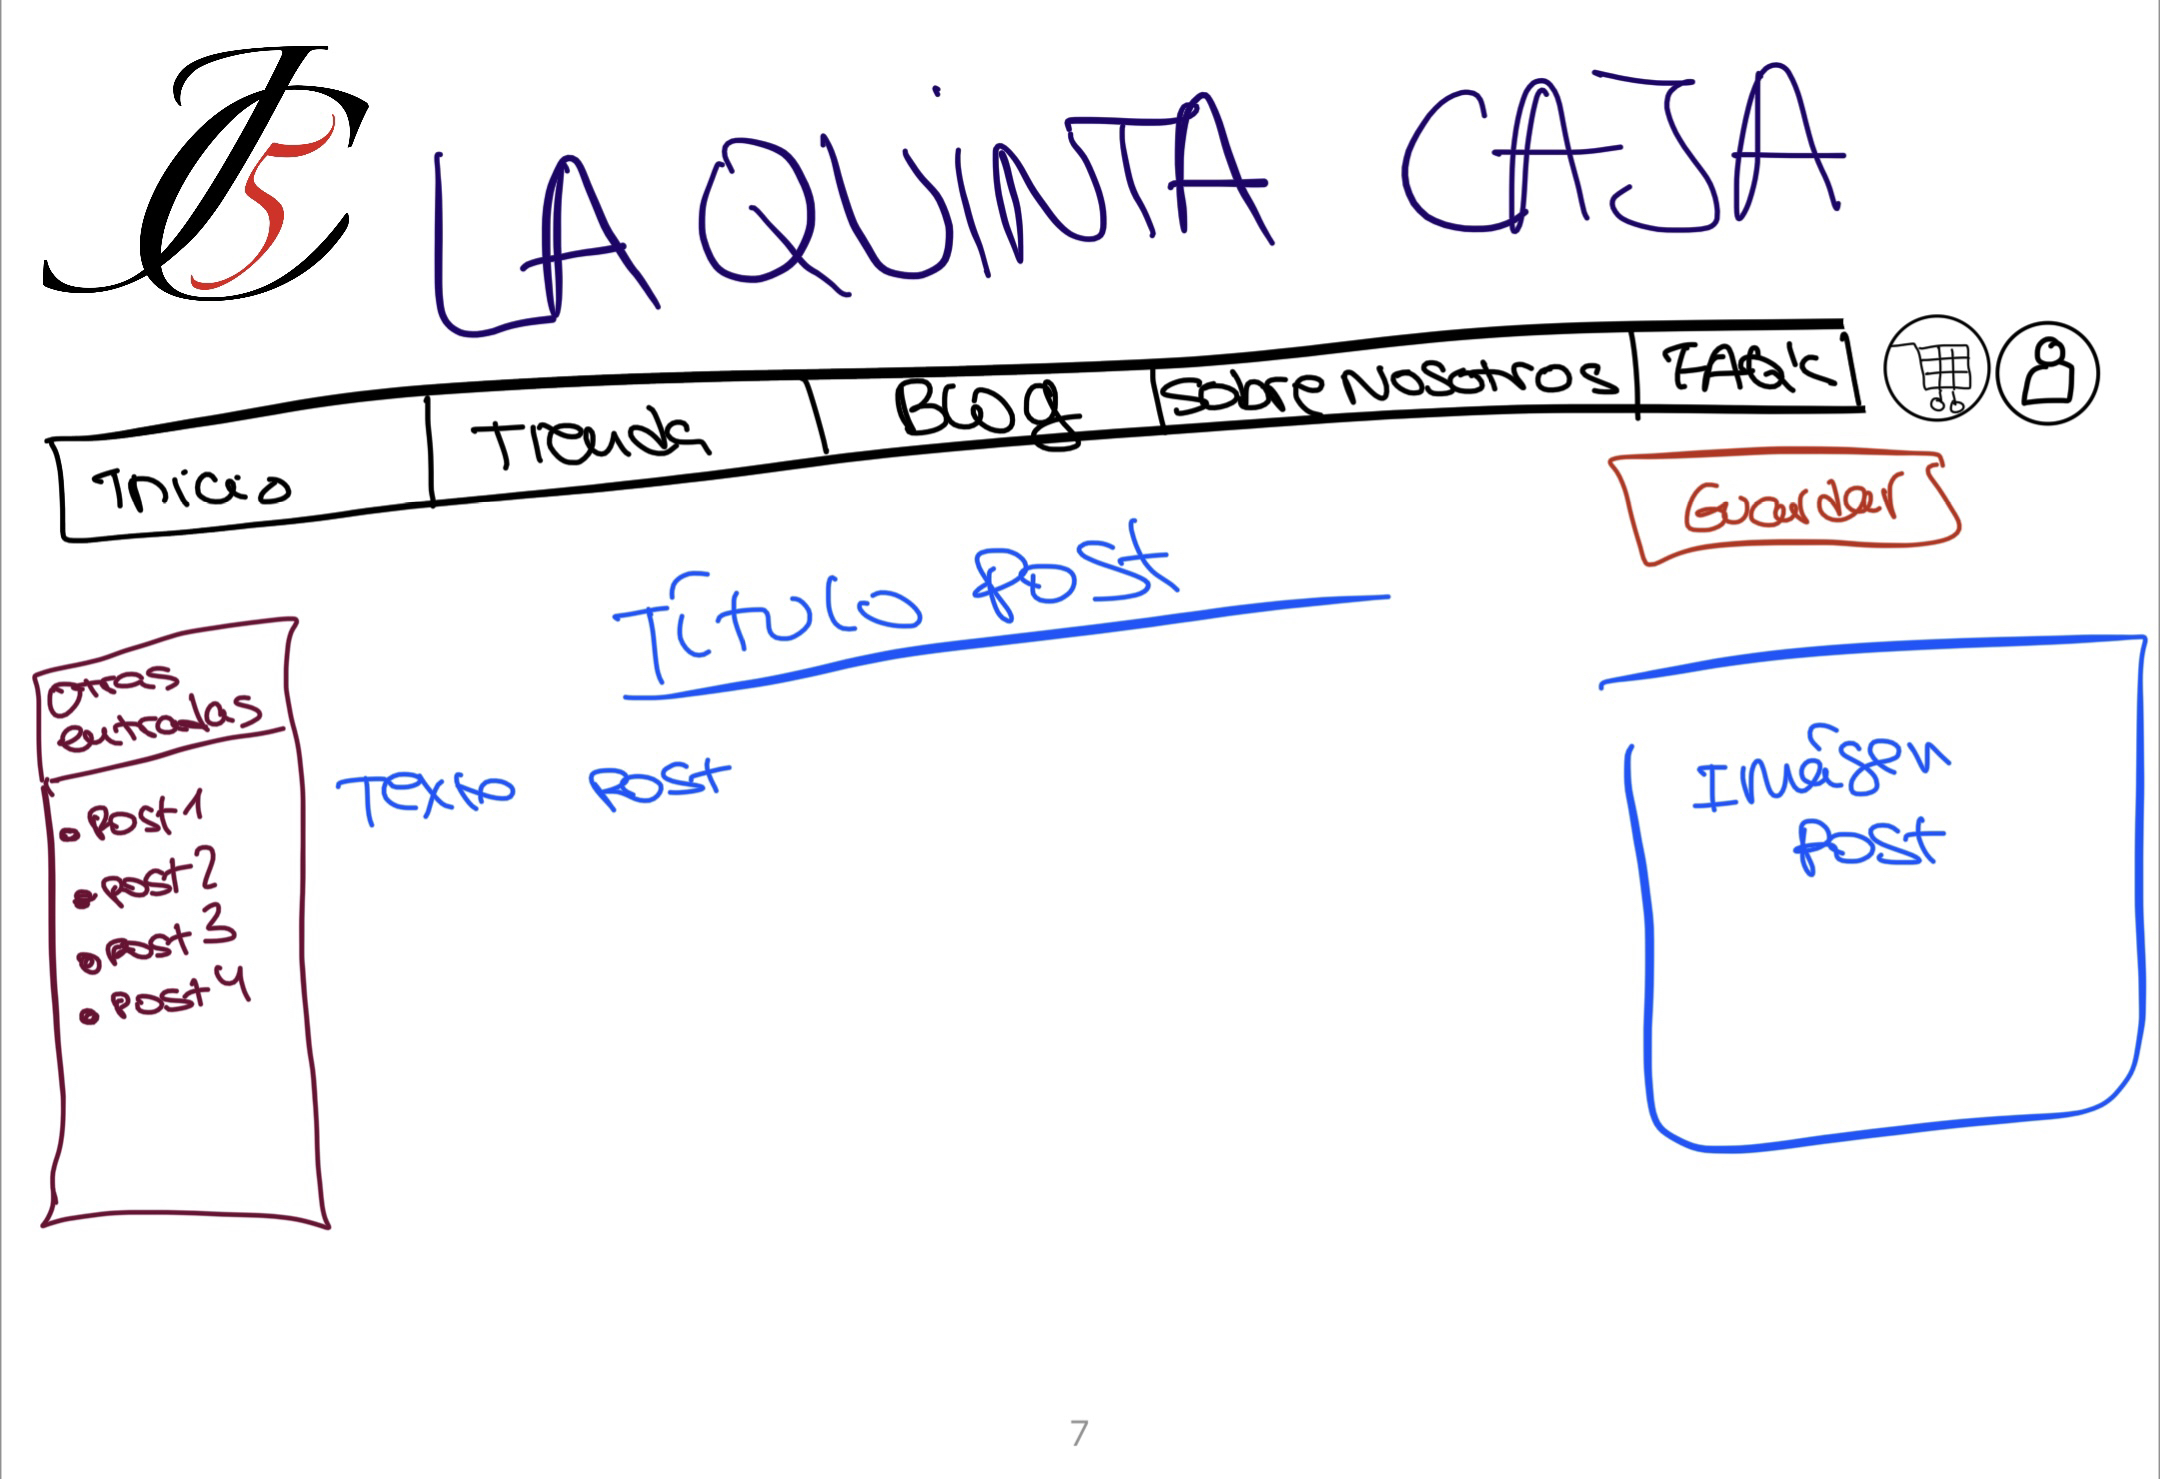 LA QUINTA CAJA
Inicio
Tienda
Blog
Sobre Nosotros
FAQ's
Guardar
Título Post
Otras
entradas
• Post 1
• Post 2
• Post 3
• Post 4
Texto Post
Imágen
Post
7